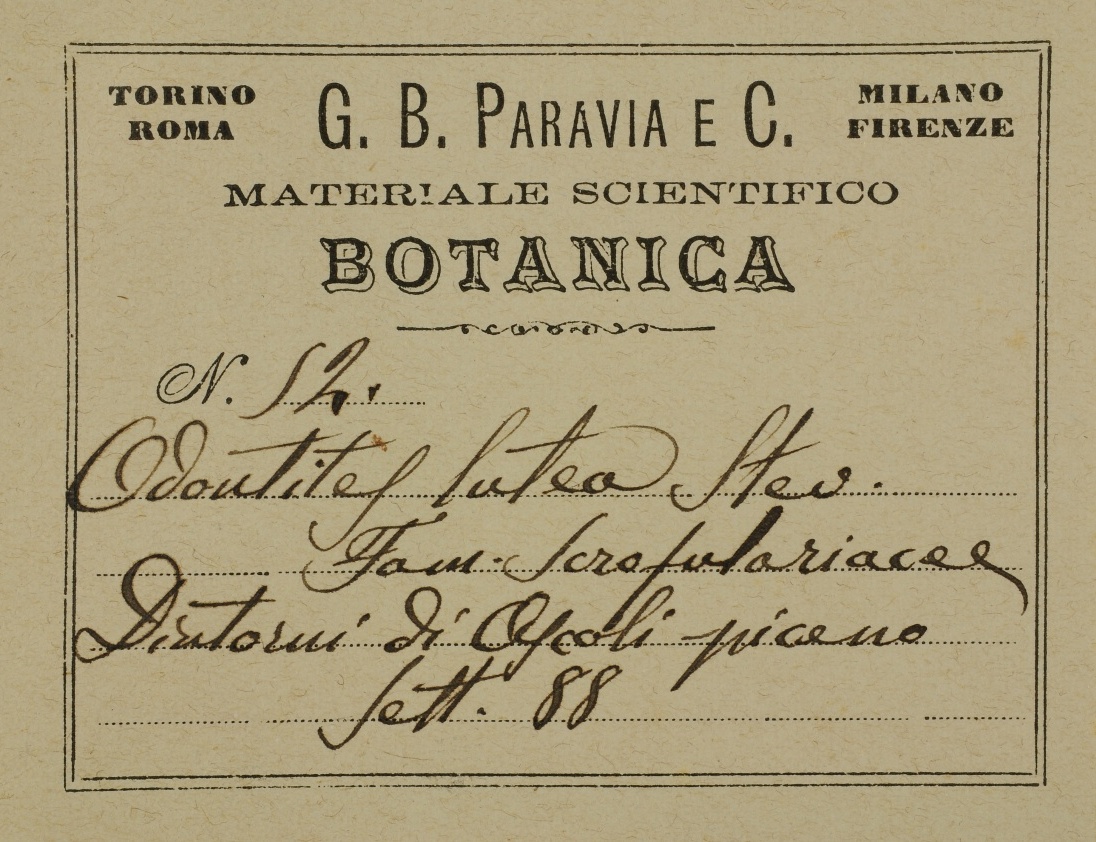 TORINO G. B. PARAVIA E C. MILANO
ROMA FIRENZE
MATERIALE SCIENTIFICO
BOTANICA
N. 52.
Odontites lutea Stev.
Fam. Scrofulariacee
Dintorni di Ascoli piceno
Sett. 88